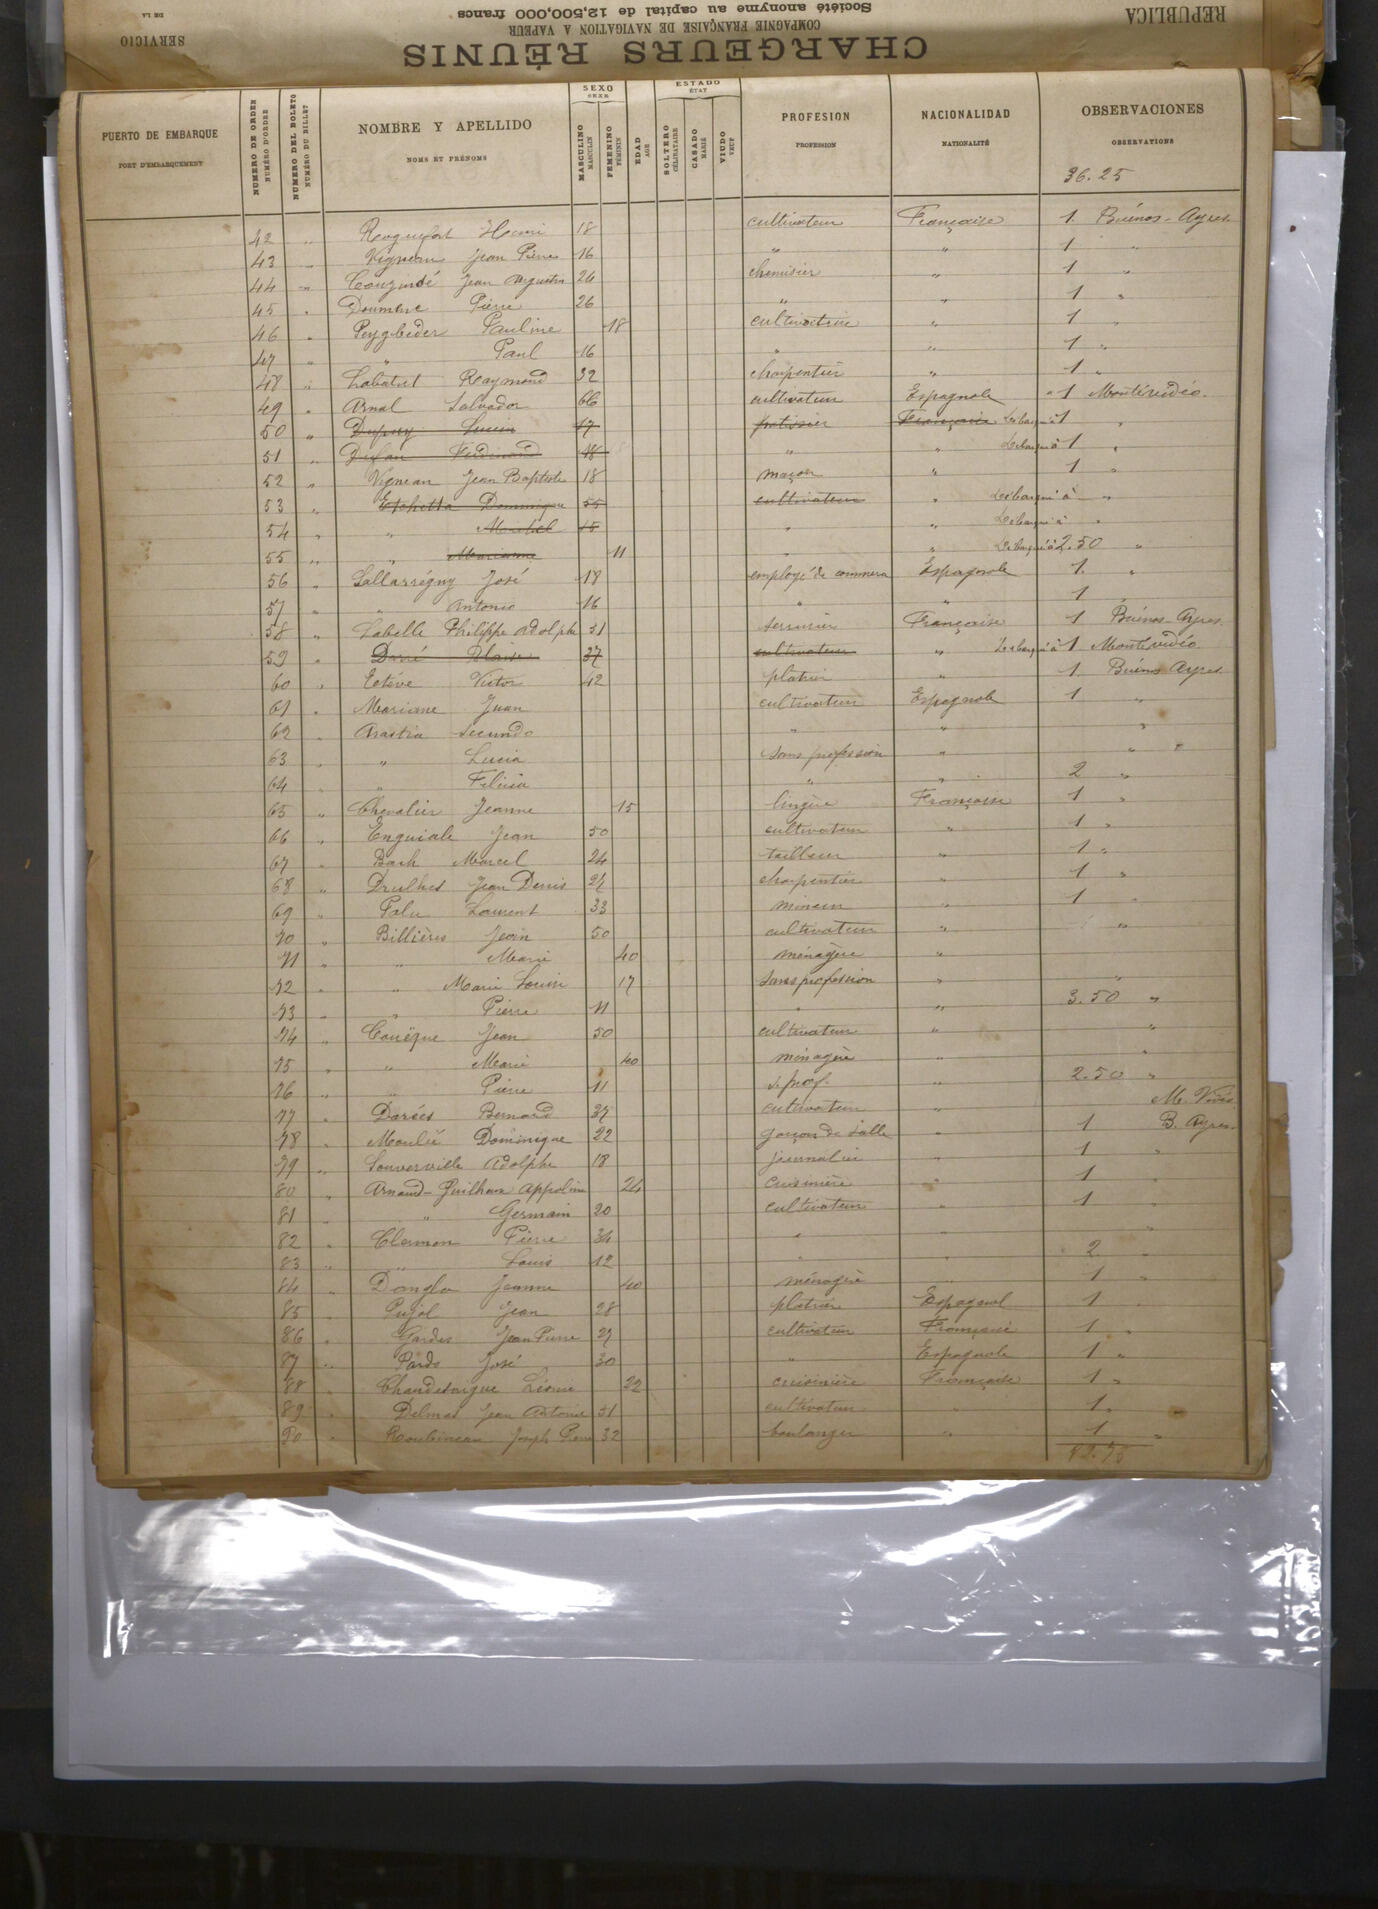 REPUBLICA
Société anonyme au capital de 12,500,000 francs
COMPAGNIE FRANÇAISE DE NAVIGATION A VAPEUR
CHARGEURS RÉUNIS
DE LA
SERVICIO
PUERTO DE EMBARQUE NUMERO DE ORDEN NUMERO DEL BOLETO NOMBRE Y APELLIDO SEXO MASCULINO FEMENINO EDAD ESTADO SOLTERO CASADO VIUDO PROFESION NACIONALIDAD OBSERVACIONES
PORT D'EMBARQUEMENT NUMÉRO D'ORDRE NUMÉRO DU BILLET NOMS ET PRÉNOMS SEXE MASCULIN FÉMININ AGE ÉTAT CÉLIBATAIRE MARIÉ VEUF PROFESSION NATIONALITÉ OBSERVATIONS
36.25
42 " Roquefort Henri 18 cultivateur Française 1 Buénos-Ayres
43 " Vigneau Jean Pierre 16 " " 1 "
44 " Jean Augustin 24 chemisier " 1 "
45 " Doumerc Pierre 26 " " 1 "
46 " Pauline 18 cultivatrice " 1 "
47 " " Paul 16 " " 1 "
48 " Labatut Raymond 32 charpentier " 1 "
49 " Arnal Salvador 66 cultivateur Espagnole 1 Montévidéo
50 " Dupuy Lucien 17 patissier Française Débarqué à 1 "
51 " Ferdinand 18 " " Débarqué à 1 "
52 " Vignean Jean Baptiste 18 maçon " 1 "
53 " Dominique 55 cultivateur " Débarqué à "
54 " " 15 " " Débarqué à "
55 " " Marianne 11 " " Débarqué à 2.50 "
56 " Sallarrégny José 18 employé de commerce Espagnole 1 "
57 " " Antonio 16 " " 1 "
58 " Labelle Philippe Adolphe 51 serrurier Française 1 Buénos-Ayres
59 " Darré Blaise 37 cultivateur " Débarqué à 1 Montévidéo
60 " Estève Victor 42 platrier " 1 Buénos Ayres
61 " Mariane Juan cultivateur Espagnole 1 "
62 " Arastia Secundo " " "
63 " " Lucia sans profession " "
64 " " Felicia " " 2 "
65 " Chevalier Jeanne 15 lingère Française 1 "
66 " Enguiale Jean 50 cultivateur " 1 "
67 " Bach Marcel 24 tailleur " 1 "
68 " Drulhes Jean Denis 24 charpentier " 1 "
69 " Palu Laurent 33 mineur " 1 "
70 " Billières Jean 50 cultivateur " "
71 " " Marie 40 ménagère "
72 " " Marie Louise 17 sans profession " "
73 " " Pierre 11 " " 3.50 "
74 " Jean 50 cultivateur " "
75 " " Marie 40 ménagère " "
76 " " Pierre 11 s. prof. " 2.50 "
77 " Darées Bernard 37 cultivateur " M. Vidéo
78 " Moulié Dominique 22 garçon de salle " 1 B. Ayres
79 " Souverville Adolphe 18 journalier " 1 "
80 " Arnaud-Guilhem Appoline 24 cuisinière " 1 "
81 " " Germain 20 cultivateur " 1 "
82 " Clermon Pierre 34 " " "
83 " " Louis 12 " " 2 "
84 " Jeanne 40 ménagère " 1 "
85 " Pujol Jean 28 platrier Espagnol 1 "
86 " Gardes Jean Pierre 27 cultivateur Française 1 "
87 " Pardo José 30 " Espagnole 1 "
88 " Chandesaigue Léonie 22 cuisinière Française 1 "
89 " Delmas Jean Antoine 51 cultivateur " 1 "
90 " Joseph Pierre 32 boulanger " 1 "